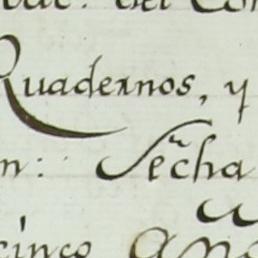 del Con
Quadernos, y
n: Fẽcha
cinco Año